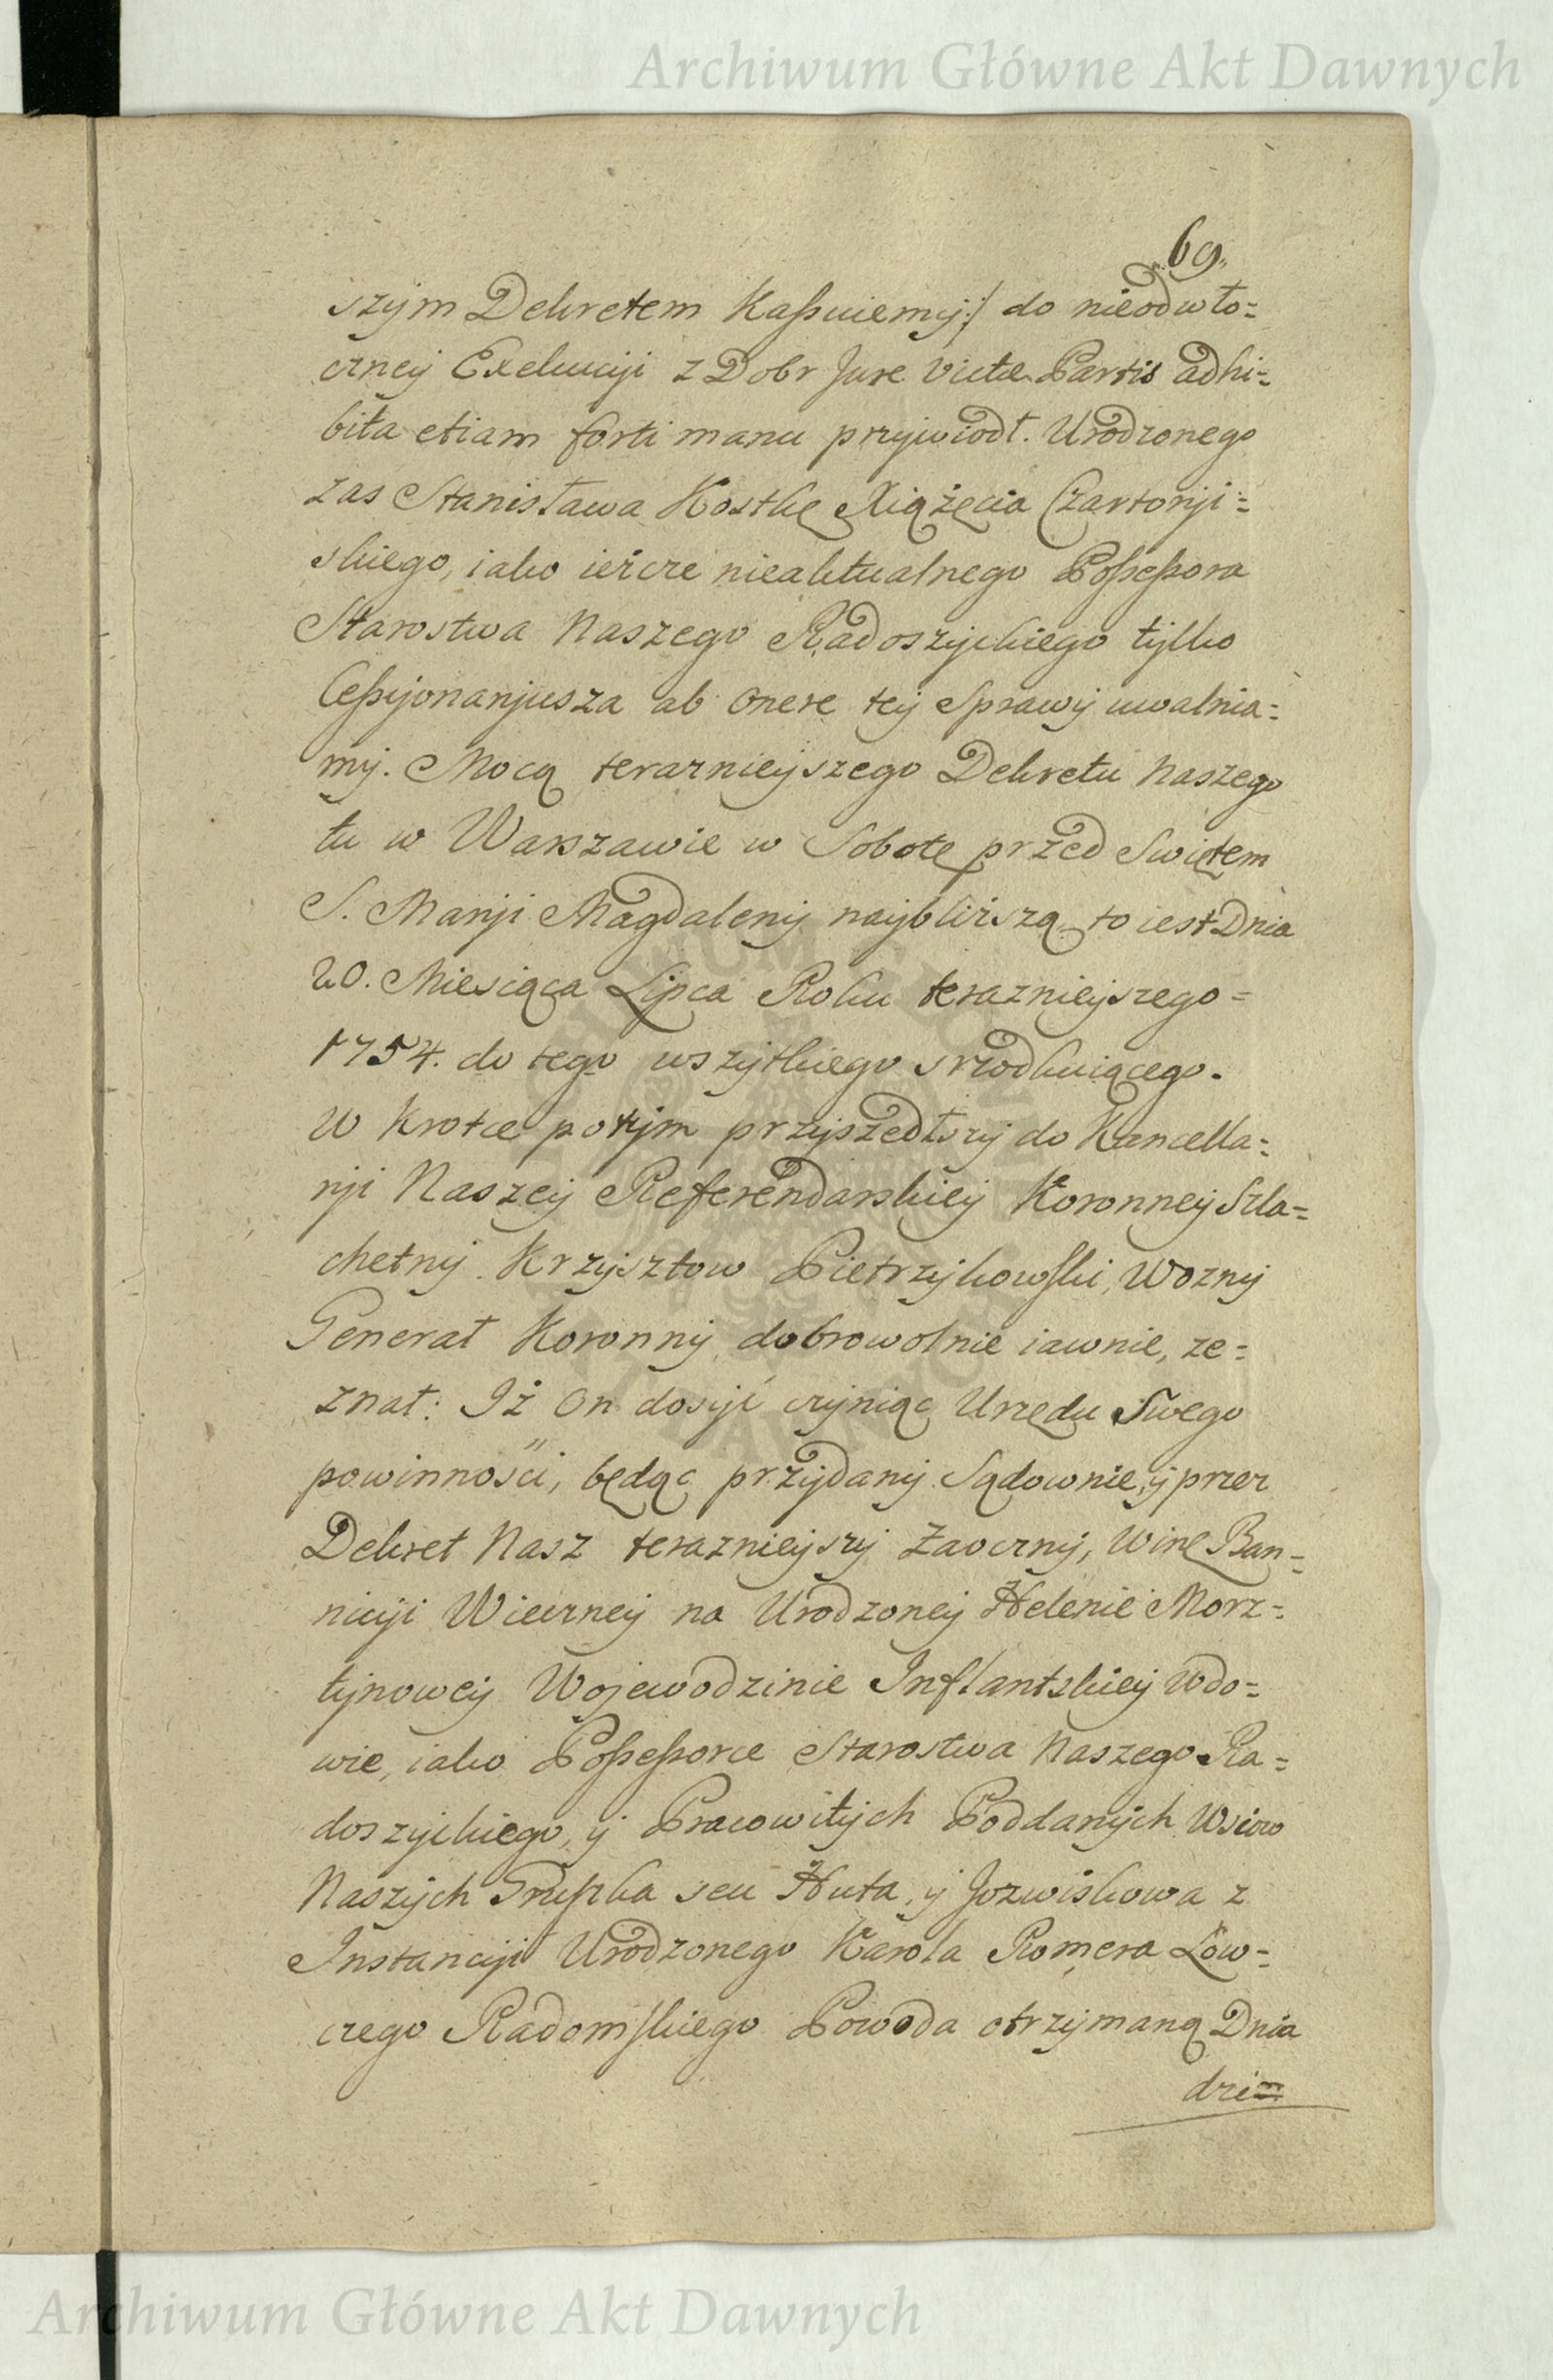 Archiwum Główne Akt Dawnych
69.
szym Dekretem Kassuiemy:/ do nieodwło=
czney Exekucyi z Dobr Jure Victæ Partis adhi=
bita etiam forti manu przywiodł. Urodzonego
zas Stanisława Kostkę Xiążęcia Czartoryi=
skiego, iako ieszcze nieaktualnego Possessora
Starostwa Naszego Radoszyckiego tylko
Cessyonaryusza ab onere tey Sprawy uwalnia=
my. Mocą teraznieyszego Dekretu Naszego
tu w Warszawie w Sobotę przed Swiętem
S. Maryi Magdaleny naybliższą to iest Dnia
20. Miesiąca Lipca Roku terazniejszego=
1754. do tego wszytkiego srzodkuiącego.
W krotce potym przyszedłszy do Kancella=
ryi Naszey Referendarskiey Koronney Szla=
chetny Krzysztow Pietrzykowski, Wozny
Generał Koronny, dobrowolnie iawnie, ze=
znał: Iż On dosyć czyniąc Urzędu Swego
powinności, będąc przydany Sądownie, y przez
Dekret Nasz terazniejszy Zaoczny, Winę Ban=
nicyi Wieczney na Urodzoney Helenie Morz=
tynowey Wojewodzinie Inflantskiey Wdo=
wie, iako Possessorce Starostwa Naszego Ra=
doszyckiego, y Pracowitych Poddanych Wsiow
Naszych Grupka seu Huta, y Jozwiskowa z
Instancyi Urodzonego Karola Romera Łow=
czego Radomskiego Powoda otrzymaną Dnia
dzi=
Archiwum Główne Akt Dawnych